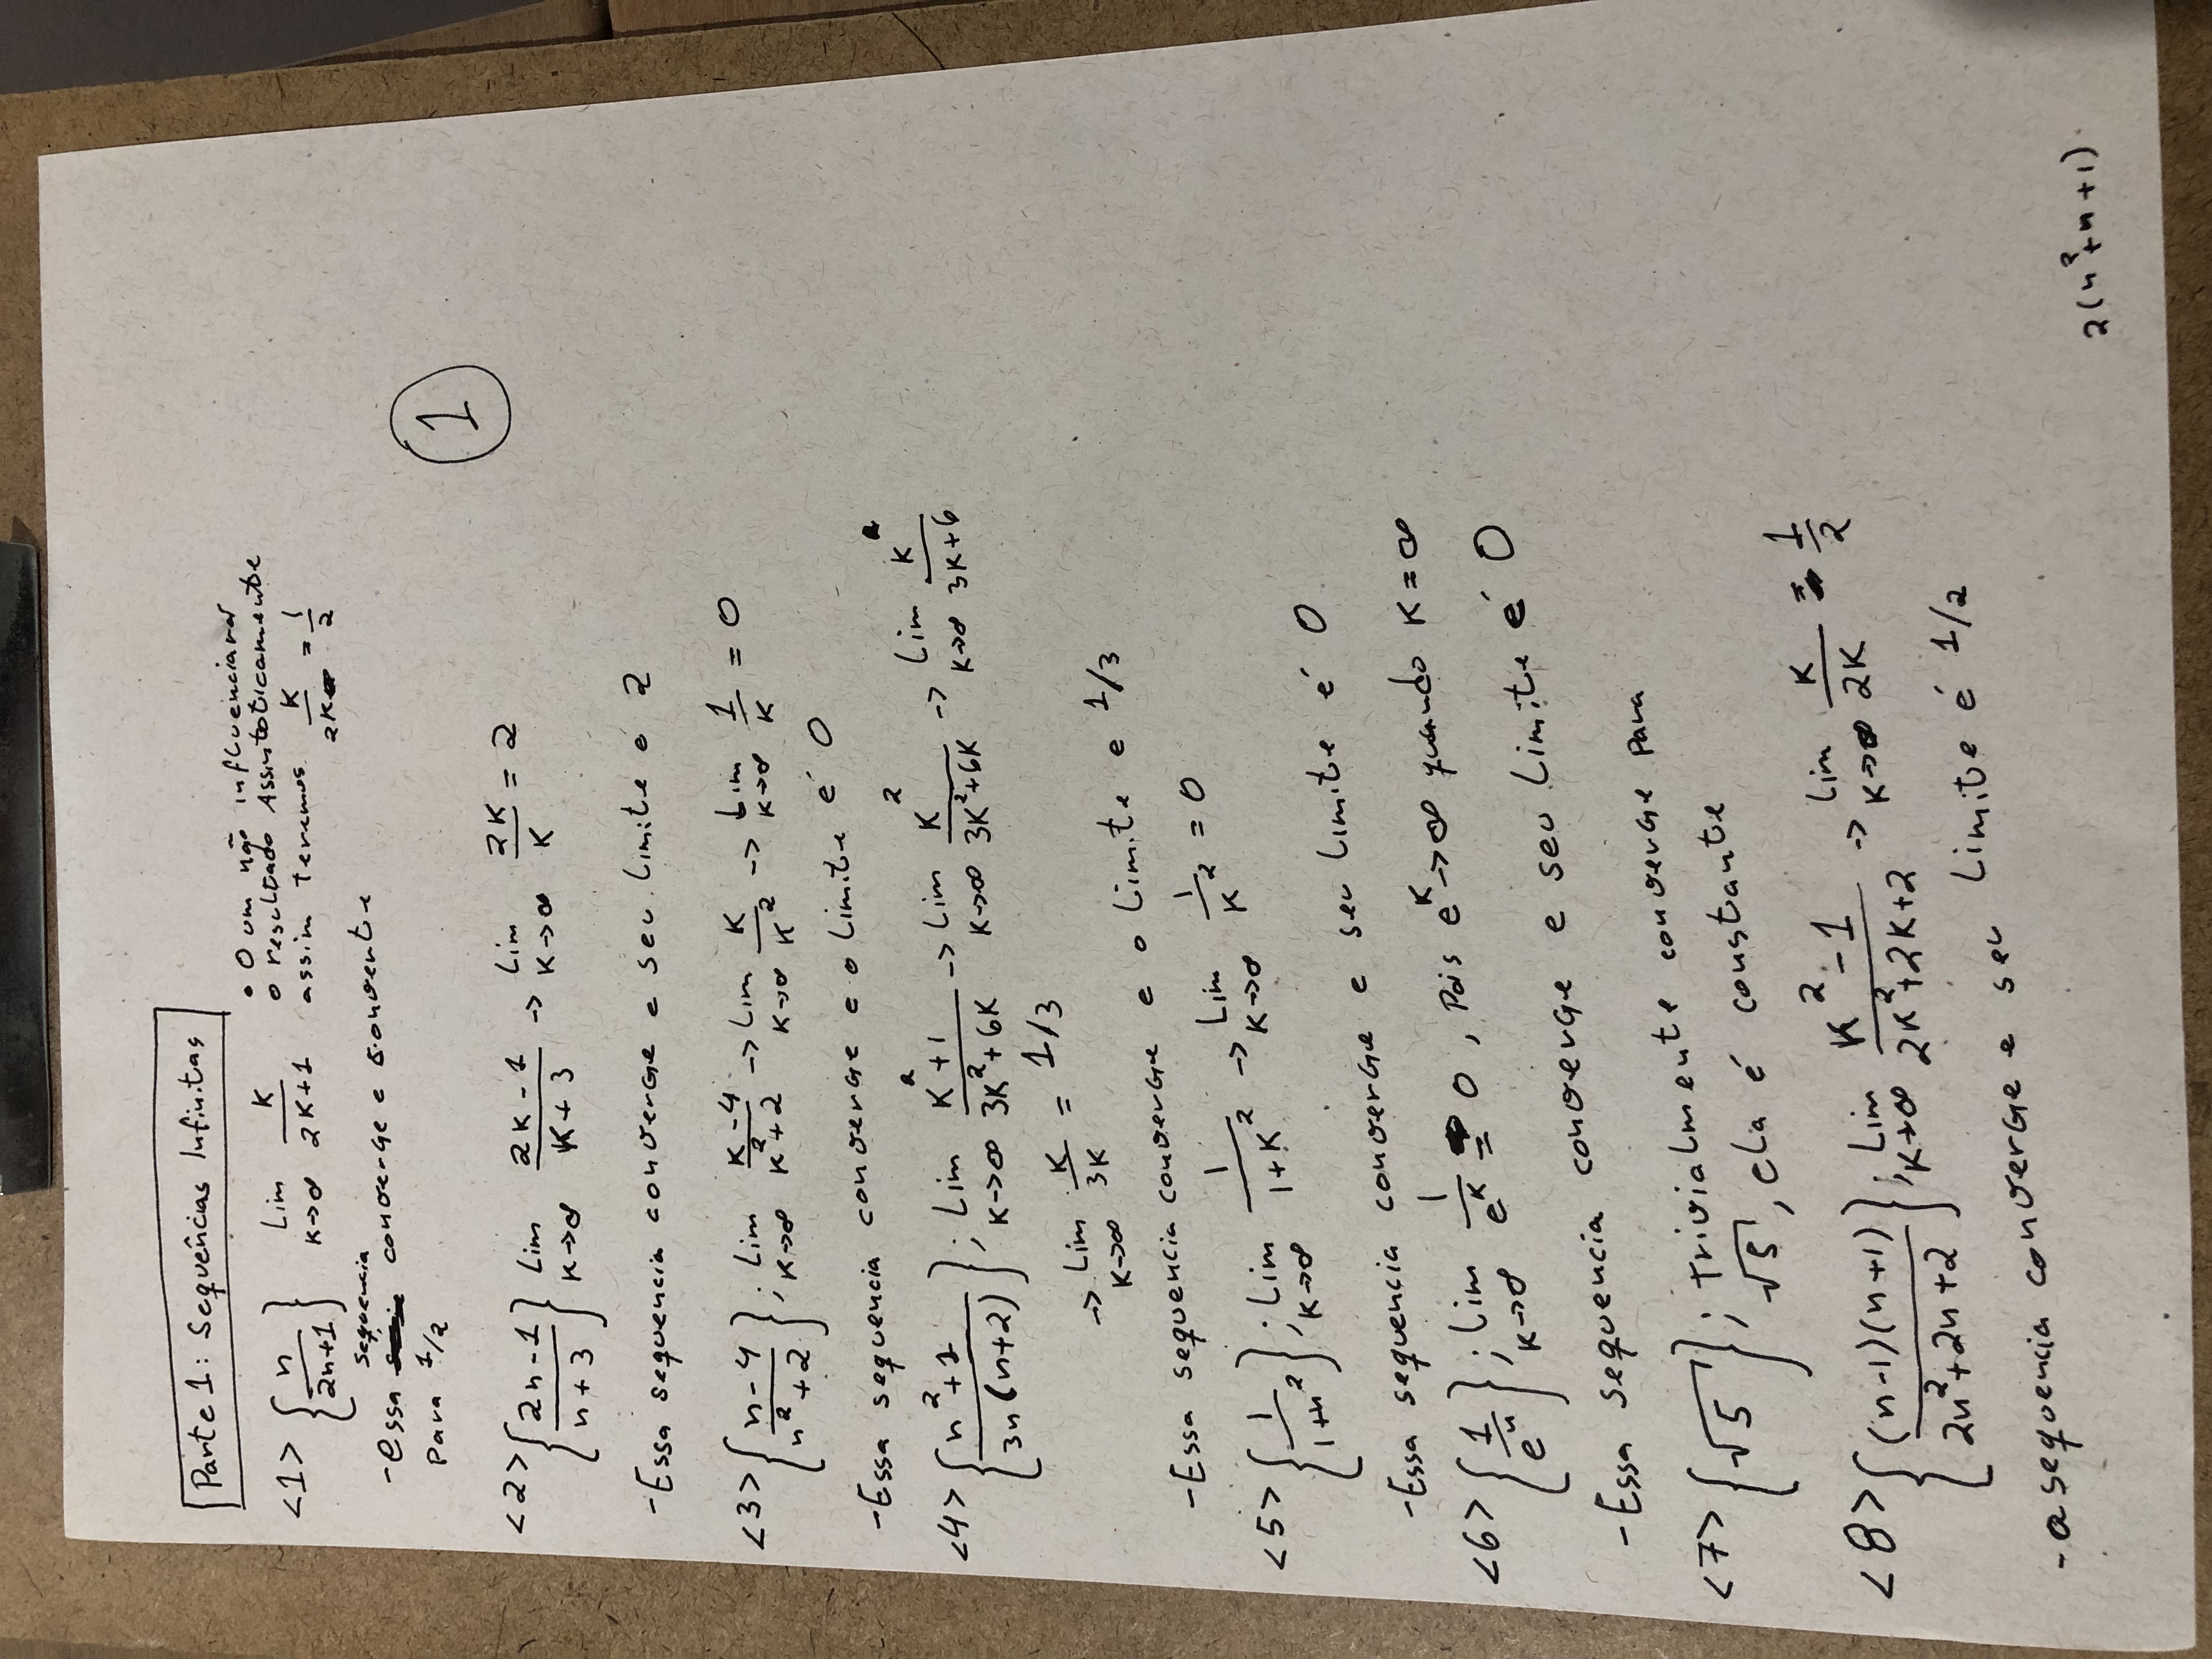 Parte 1: Sequências Infinitas
• O um não influenciará
o resultado Assintoticamente
<1> { n/(2n+1) } Lim K→∞ K/(2K+1) assim teremos K/2K = 1/2
sequencia
- essa converge e
Para 1/2
1
<2> { (2n-1)/(n+3) } Lim K→∞ (2K-1)/(K+3) → Lim K→∞ 2K/K = 2
- Essa sequencia converge e seu limite é 2
<3> { (n-4)/(n²+2) } ; Lim K→∞ (K-4)/(K²+2) → Lim K→∞ K/K² → Lim K→∞ 1/K = 0
- Essa sequencia converge e o limite é 0
<4> { (n²+1)/(3n(n+2)) } ; Lim K→∞ (K²+1)/(3K²+6K) → Lim K→∞ K²/(3K²+6K) → Lim K→∞ K/(3K+6)
→ Lim K→∞ K/3K = 1/3
- Essa sequencia converge e o limite e 1/3
<5> { 1/(1+n²) } ; Lim K→∞ 1/(1+K²) → Lim K→∞ 1/K² = 0
- Essa sequencia converge e seu limite é 0
<6> { 1/eⁿ } ; Lim K→∞ 1/e^K = 0 , Pois e^K→∞ quando K=∞
- Essa sequencia converge e seu limite é 0
<7> { √5 } ; trivialmente converge para
√5, ela é constante
<8> { (n-1)(n+1)/(2n²+2n+2) } ; Lim K→∞ (K²-1)/(2K²+2K+2) → Lim K→∞ K/2K = 1/2
- a sequencia converge e seu limite é 1/2
2(n²+n+1)